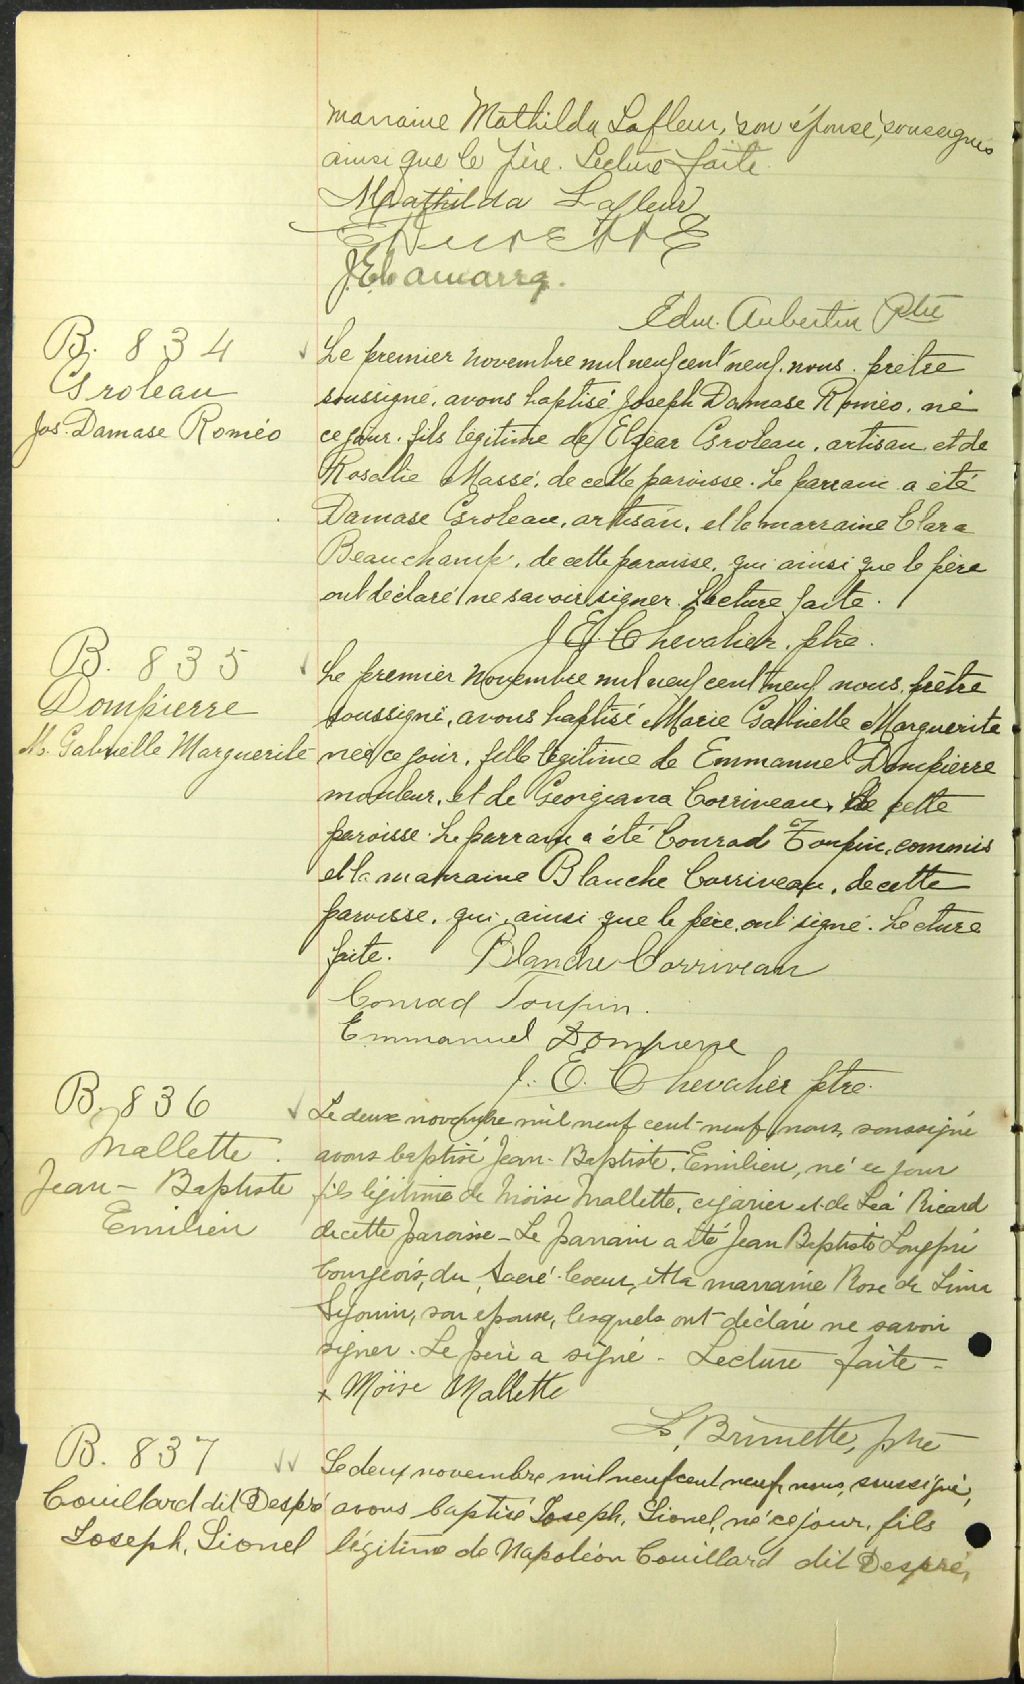 marraine Mathilda Lafleur, son épouse, soussignés
ainsi que le père. Lecture faite.
Mathilda Lafleur
Edm. Aubertin Ptre
B. 834
Groleau
Jos. Damase Roméo
Le premier novembre mil neuf cent neuf, nous, prêtre
soussigné, avons baptisé Joseph Damase Roméo, né
ce jour, fils légitime de Elzéar Groleau, artisan, et de
Rosalie Massé, de cette paroisse. Le parrain a été
Damase Groleau, artisan, et la marraine Clara
Beauchamp, de cette paroisse, qui ainsi que le père
ont déclaré ne savoir signer. Lecture faite.
J. E. Chevalier, ptre.
B. 835
Dompierre
M. Gabrielle Marguerite
Le premier novembre mil neuf cent neuf nous, prêtre
soussigné, avons baptisé Marie Gabrielle Marguerite
née ce jour, fille légitime de Emmanuel Dompierre
mouleur, et de Georgiana Corriveau, de cette
paroisse. Le parrain a été Conrad Toupin, commis
et la marraine Blanche Corriveau, de cette
paroisse, qui, ainsi que le père, ont signé. Lecture
faite. Blanche Corriveau
Conrad Toupin.
Emmanuel Dompierre
J. E. Chevalier ptre.
B. 836
Mallette.
Jean-Baptiste
Emilien
Le deux novembre mil neuf cent-neuf, nous, soussigné
avons baptisé Jean-Baptiste, Emilien, né ce jour
fils légitime de Moïse Mallette, cigarier et de Léa Ricard
de cette paroisse - Le parrain a été Jean Baptiste Longpré
bourgeois, du Sacré-Coeur, et la marraine Rose de Lima
Séjourin, son épouse, lesquels ont déclaré ne savoir
signer. Le père a signé - Lecture faite -
x Moïse Mallette
Brunette, ptre
B. 837
Couillard dit Despré
Joseph, Lionel
Le deux novembre mil neuf cent neuf, nous, soussigné,
avons baptisé Joseph, Lionel, né ce jour, fils
légitime de Napoléon Couillard dit Despré,